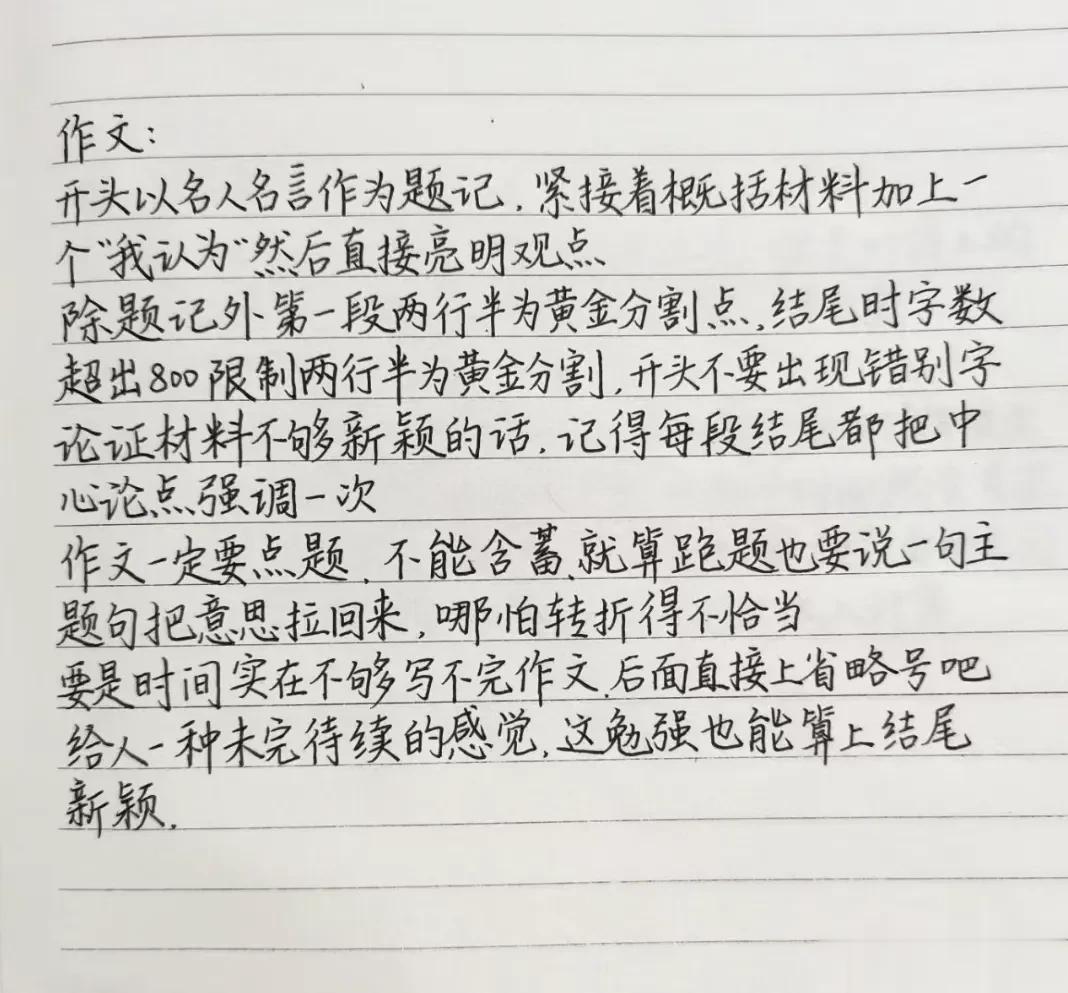 作文:
开头以名人名言作为题记,紧接着概括材料加上一
个“我认为”然后直接亮明观点
除题记外第一段两行半为黄金分割点,结尾时字数
超出800限制两行半为黄金分割,开头不要出现错别字
论证材料不够新颖的话,记得每段结尾都把中
心论点强调一次
作文一定要点题,不能含蓄,就算跑题也要说一句主
题句把意思拉回来,哪怕转折得不恰当
要是时间实在不够写不完作文,后面直接上省略号吧
给人一种未完待续的感觉,这勉强也能算上结尾
新颖.